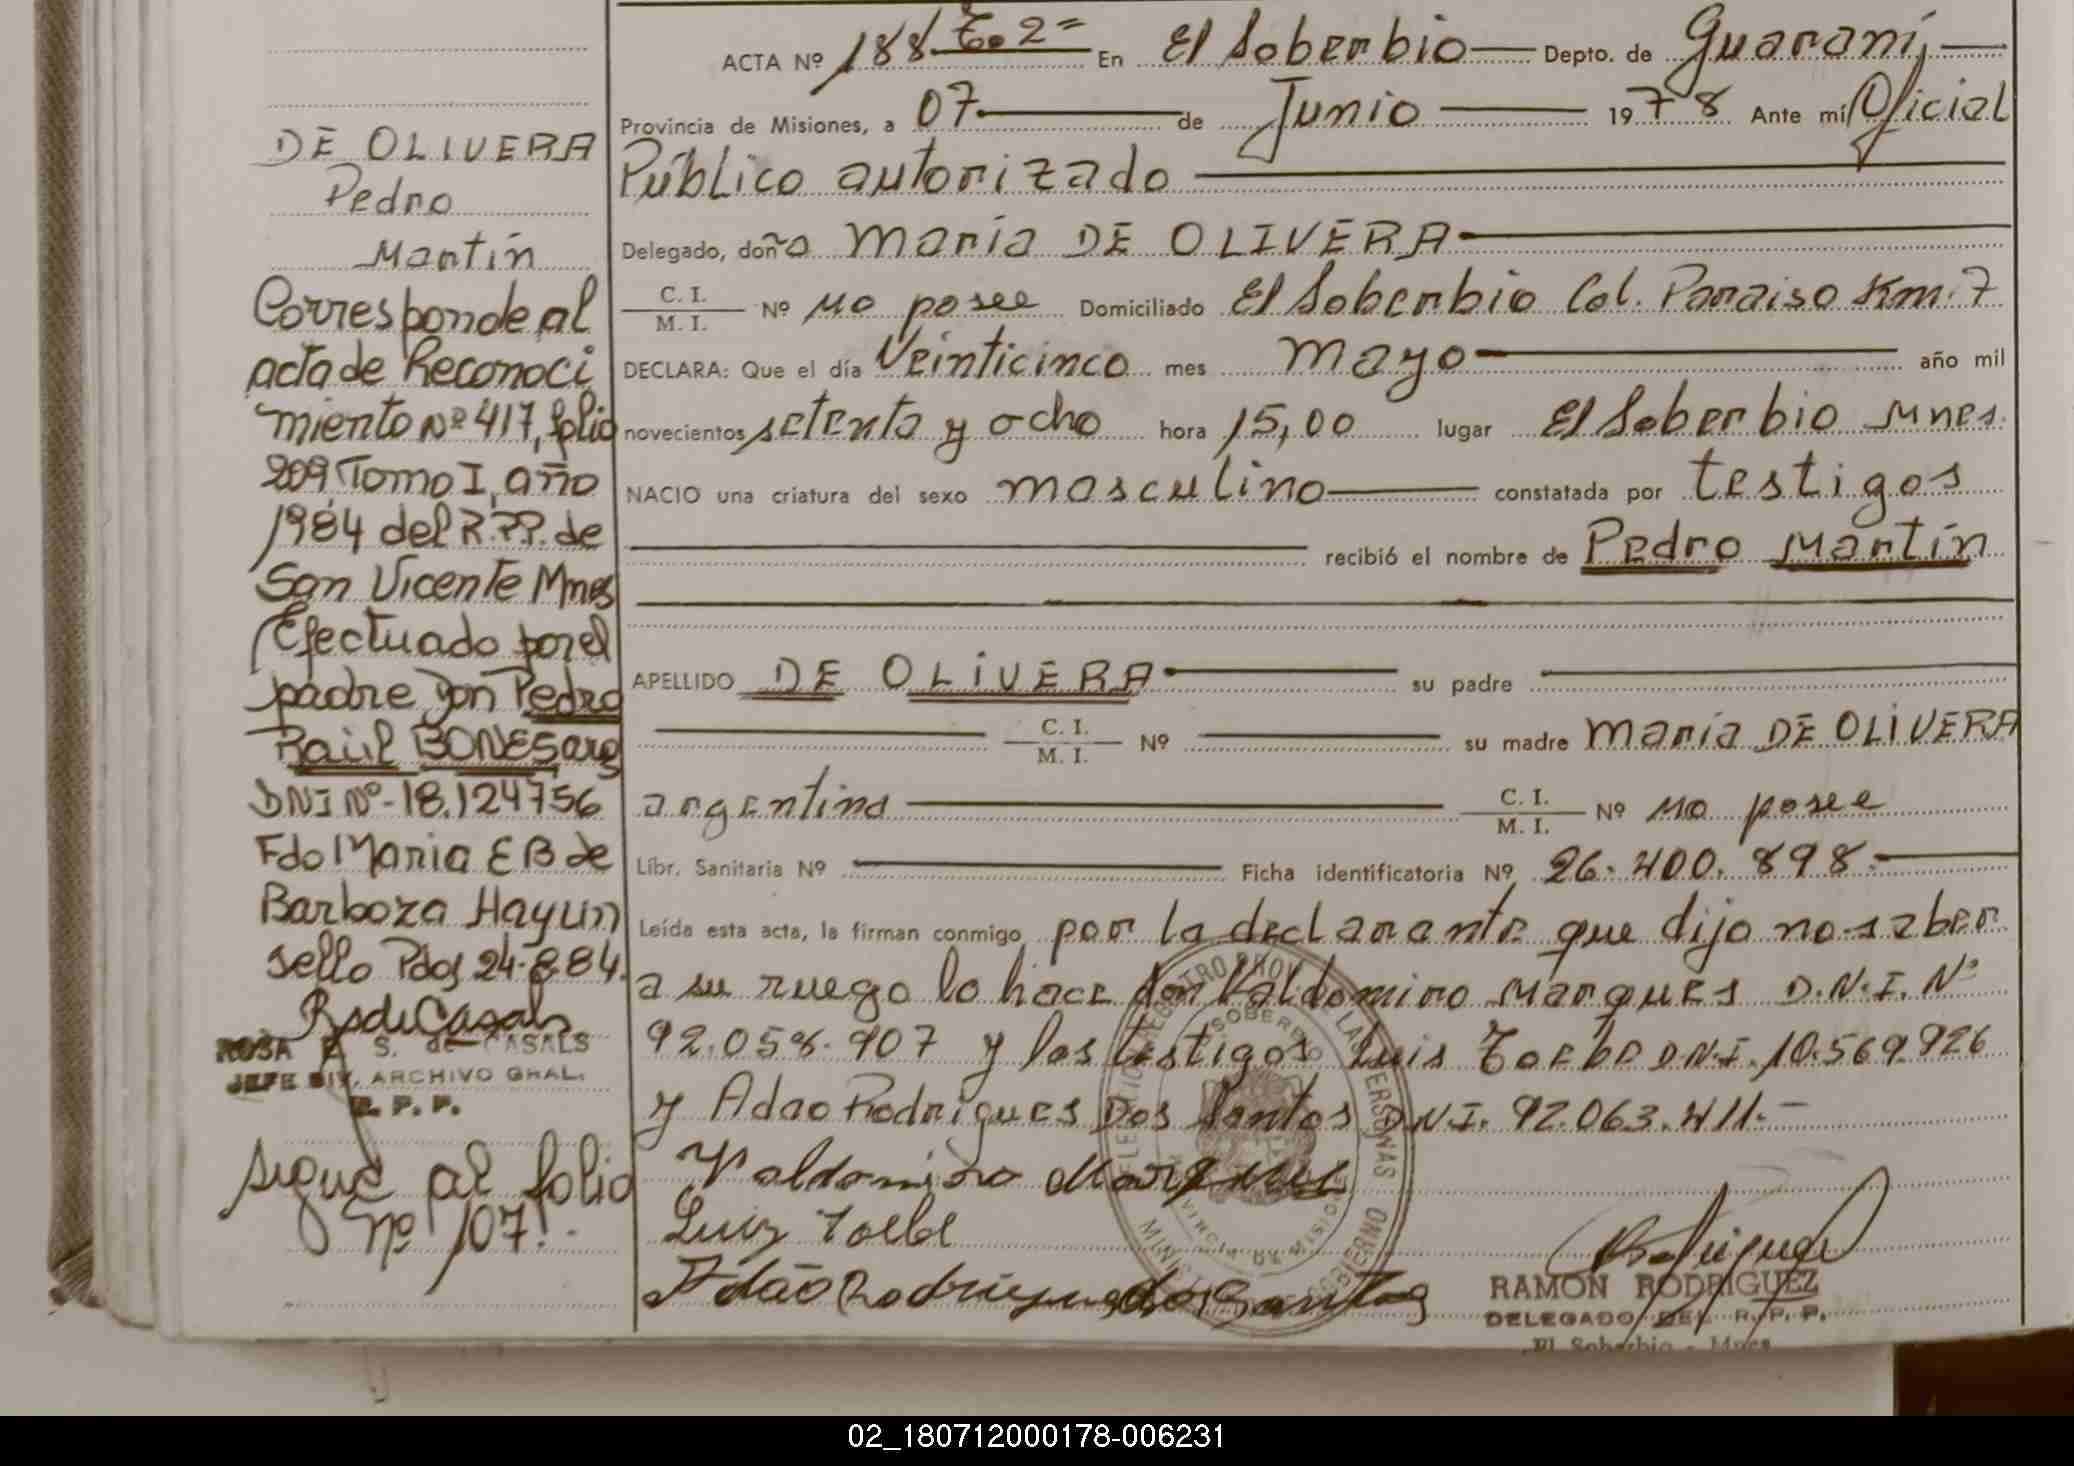 DE OLIVERA
Pedro
Martín
Corresponde al
acta de Reconoci
miento Nº 417, folio
209, Tomo I, año
1984 del R.P.P. de
San Vicente Mnes
Efectuado por el
padre Don Pedro
Raúl BONES arg
DNI Nº-18.124756
Fdo Maria E B de
Barboza Hayun
sello Pdos 24-8-84.
ROSA E. S. de CASALS
JEFE DIV. ARCHIVO GRAL.
R. P. P.
sigue al folio
nº 107.-
ACTA Nº 188 To. 2= En El Soberbio Depto. de Guaraní,
Provincia de Misiones, a 07 de Junio 1978 Ante mí Oficial
Público autorizado
Delegado, doña María DE OLIVERA
C. I.
M. I. Nº No posee Domiciliado El Soberbio Col. Paraiso Km. 7
DECLARA: Que el día Veinticinco mes Mayo año mil
novecientos setenta y ocho hora 15,00 lugar El Soberbio Mnes.
NACIO una criatura del sexo masculino constatada por testigos
recibió el nombre de Pedro Martín
APELLIDO DE OLIVERA su padre
C. I.
M. I. Nº su madre María DE OLIVERA
argentina C. I.
M. I. Nº No posee
Libr. Sanitaria Nº Ficha identificatoria Nº 26.400.898.
Leída esta acta, la firman conmigo por la declarante que dijo no saber
a su ruego lo hace don Valdomiro Marques D.N.I. Nº
92.058.907 y los testigos Luis Toebe D.N.I. 10.569.926
y Adao Rodrigues Dos Santos D.N.I. 92.063.411.-
Valdomiro Marques
Luiz Toebe
Adão Rodrigues dos Santos
RAMON RODRIGUEZ
DELEGADO DEL R. P. P.
El Soberbio - Mnes
02_180712000178-006231